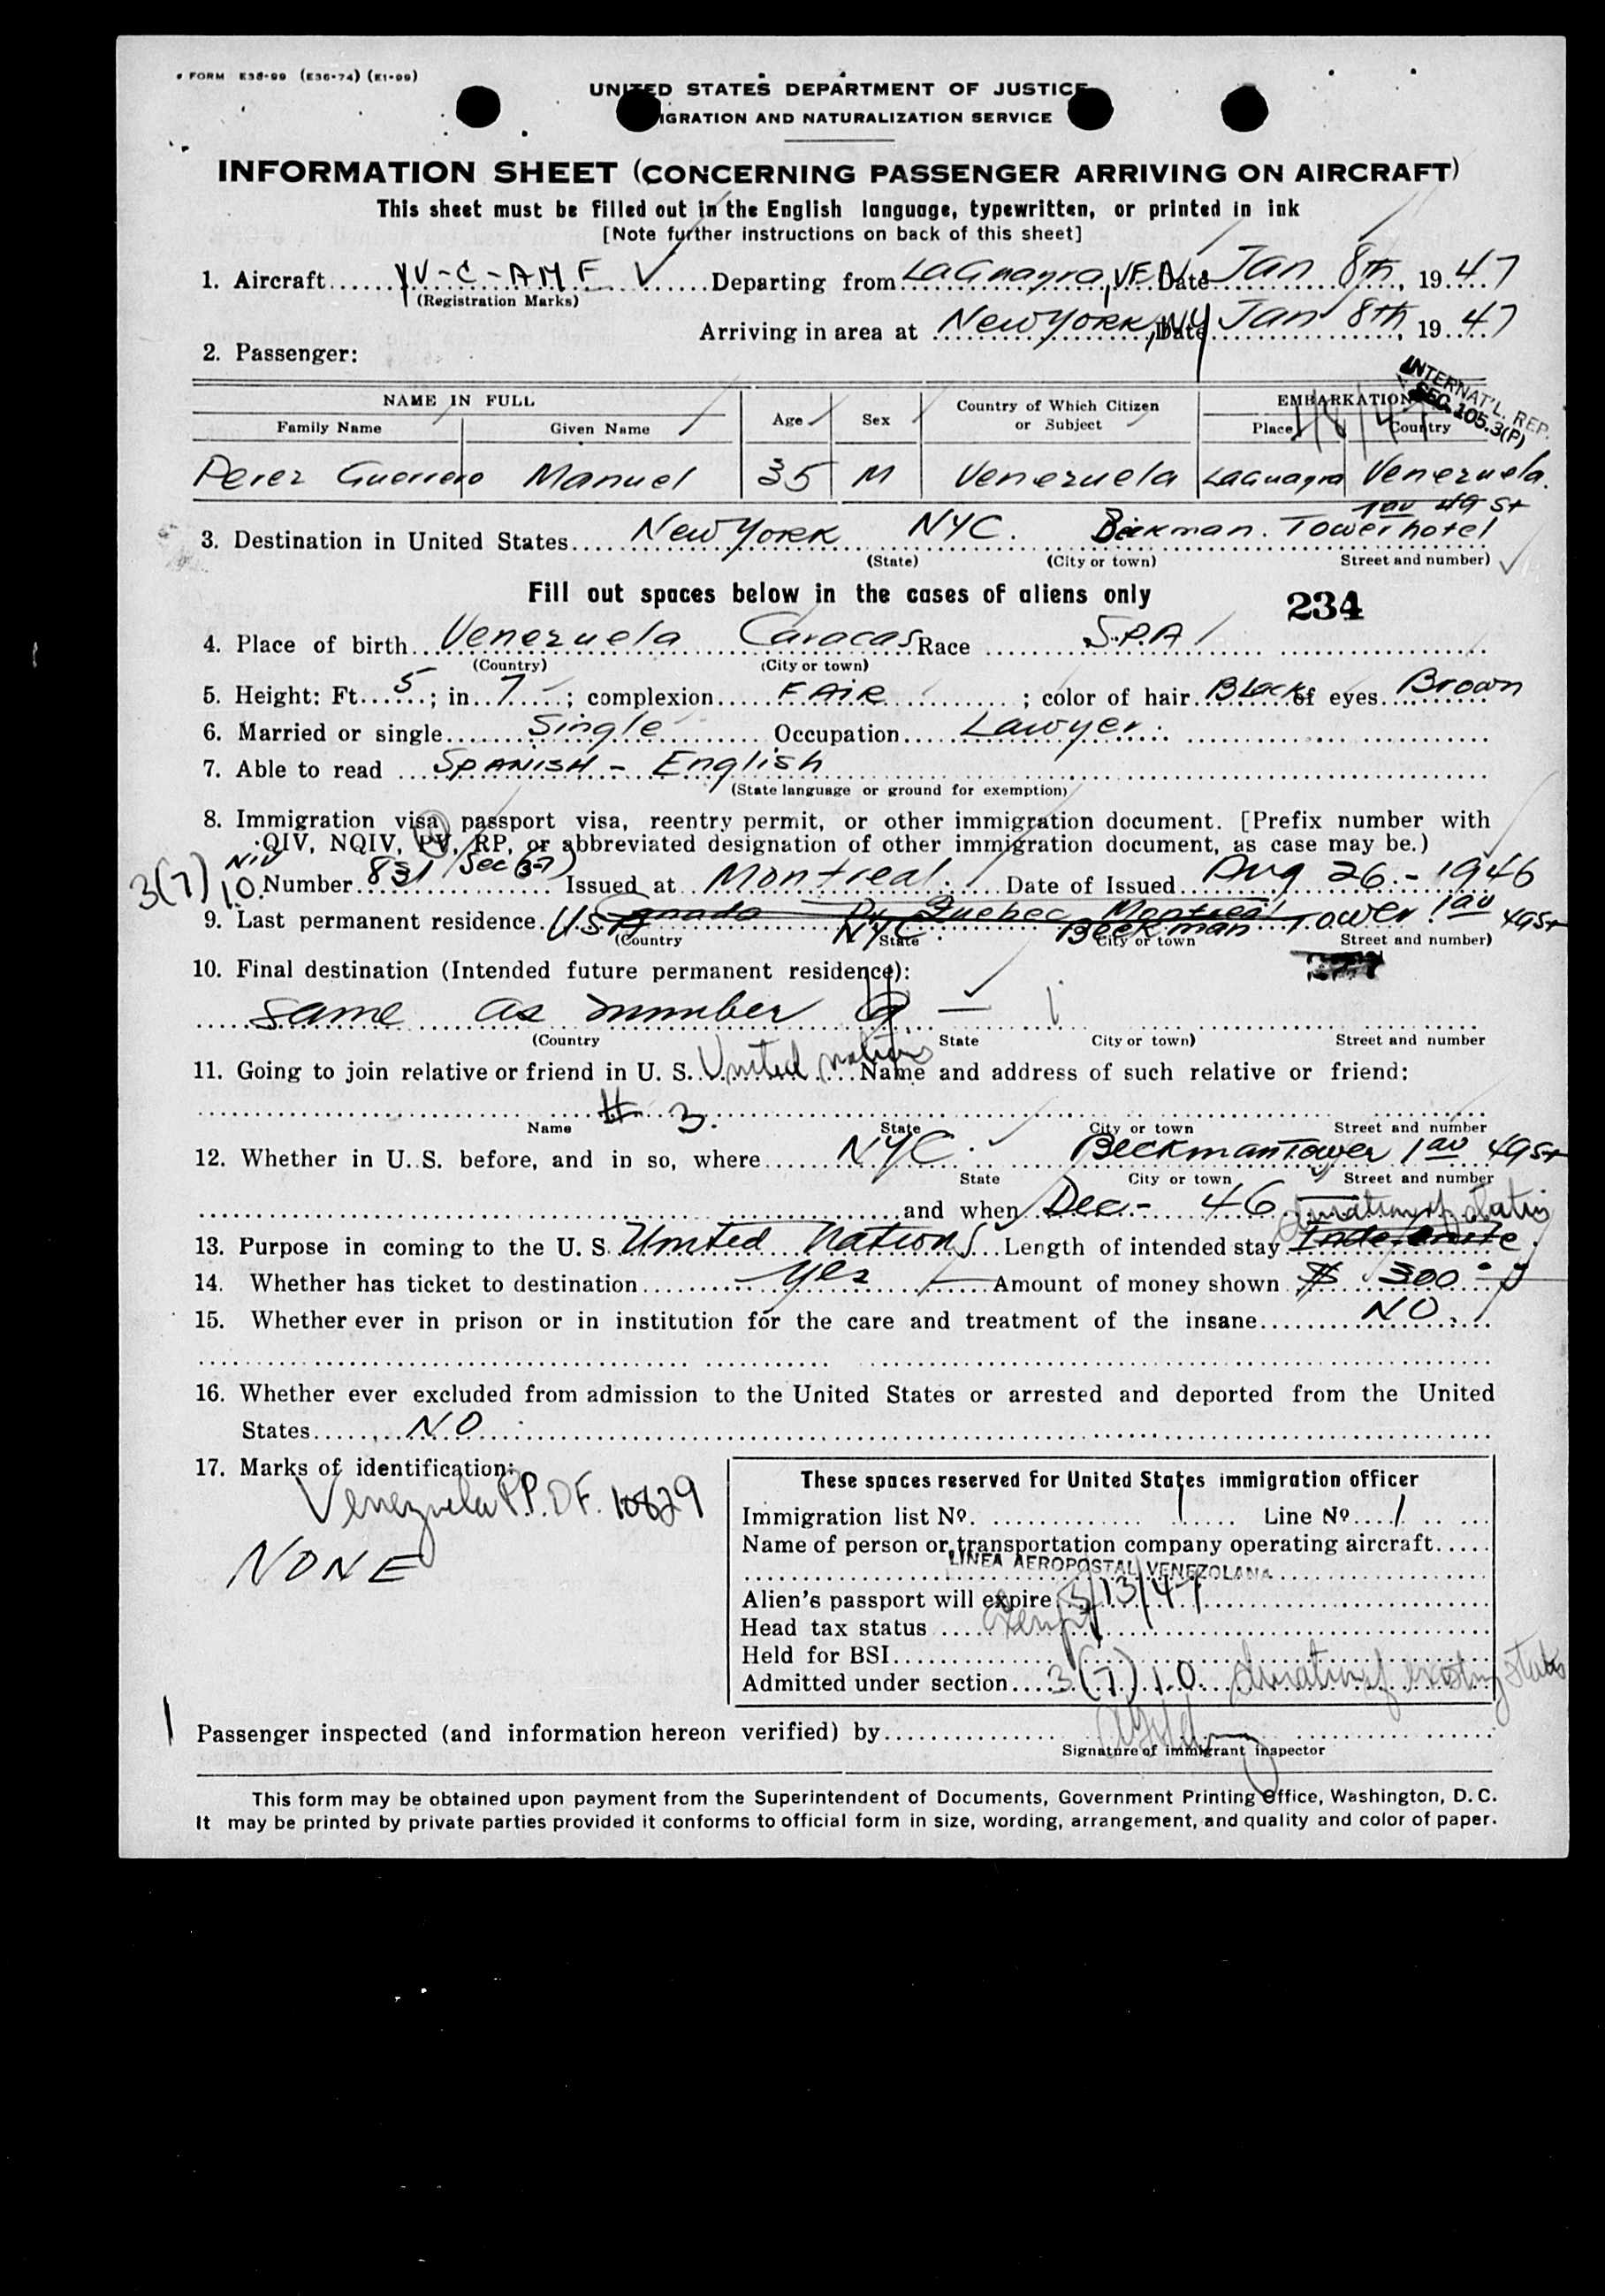 FORM E36-99 (E36-74) (E1-99)
UNITED STATES DEPARTMENT OF JUSTICE
IGRATION AND NATURALIZATION SERVICE
INFORMATION SHEET (CONCERNING PASSENGER ARRIVING ON AIRCRAFT)
This sheet must be filled out in the English language, typewritten, or printed in ink
[Note further instructions on back of this sheet]
1. Aircraft YV-C-AME Departing from La Guayra, VEN. Date Jan 8th, 1947
(Registration Marks)
Arriving in area at New York, NY Date Jan 8th, 1947
2. Passenger:
INTERNAT'L. REP.
SEC. 105.3(P)
NAME IN FULL Age Sex Country of Which Citizen or Subject EMBARKATION
Family Name Given Name Place Country
1/8/47
Perez Guerrero Manuel 35 M Venezuela LaGuayra Venezuela.
1av 49 St
3. Destination in United States New York NYC. Beekman. Tower hotel
(State) (City or town) Street and number)
Fill out spaces below in the cases of aliens only 234
4. Place of birth Venezuela Caracas Race S.P.A
(Country) (City or town)
5. Height: Ft. 5; in. 7; complexion FAIR; color of hair Black of eyes Brown
6. Married or single Single Occupation Lawyer
7. Able to read SPANISH - English
(State language or ground for exemption)
8. Immigration visa, passport visa, reentry permit, or other immigration document. [Prefix number with
QIV, NQIV, PV, RP, or abbreviated designation of other immigration document, as case may be.)
NIV
3(7) I.O. Number 831 Sec (3-7) Issued at Montreal Date of Issued Aug 26 - 1946
Canada Pr Quebec Montreal
9. Last permanent residence USA NYC. Beekman Tower 1av 49St
(Country State City or town Street and number)
10. Final destination (Intended future permanent residence):
same as number 9 —
(Country State City or town) Street and number
11. Going to join relative or friend in U. S. United nations Name and address of such relative or friend:
# 3.
Name State City or town Street and number
12. Whether in U. S. before, and in so, where NYC. Beekman Tower 1av 49St
State City or town Street and number
and when Dec - 46
duration of status
13. Purpose in coming to the U. S. United Nations Length of intended stay Indefinite
14. Whether has ticket to destination yes Amount of money shown $ 300
15. Whether ever in prison or in institution for the care and treatment of the insane NO
16. Whether ever excluded from admission to the United States or arrested and deported from the United
States NO
17. Marks of identification:
Venezuela P.P. DF. 10829
NONE
These spaces reserved for United States immigration officer
Immigration list No. 1 Line No. 1
Name of person or transportation company operating aircraft
LINEA AEROPOSTAL VENEZOLANA
Alien's passport will expire 5/13/47
Head tax status Exempt
Held for BSI
Admitted under section 3(7) I.O. duration of existing status
Passenger inspected (and information hereon verified) by
Signature of immigrant inspector
This form may be obtained upon payment from the Superintendent of Documents, Government Printing Office, Washington, D. C.
It may be printed by private parties provided it conforms to official form in size, wording, arrangement, and quality and color of paper.